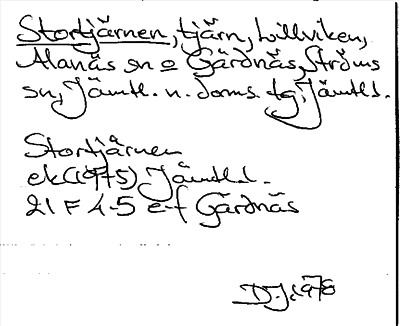 Stortjärnen, tjärn, Lillviken,
Alanäs sn o Gärdnäs, Ströms
sn, Jämtl. n. doms. tg, Jämtl.l.
Stortjärnen
ek(1975) Jämtl.l.
21 F 4-5 e-f Gärdnäs
D.J. 1978